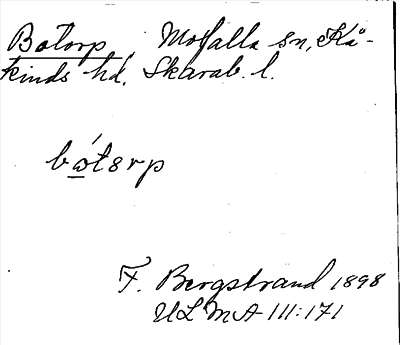 Botorp, Mofalla sn, Kå-
kinds hd, Skarab. l.
bώtørp
F. Bergstrand 1898
ULMA 111:171